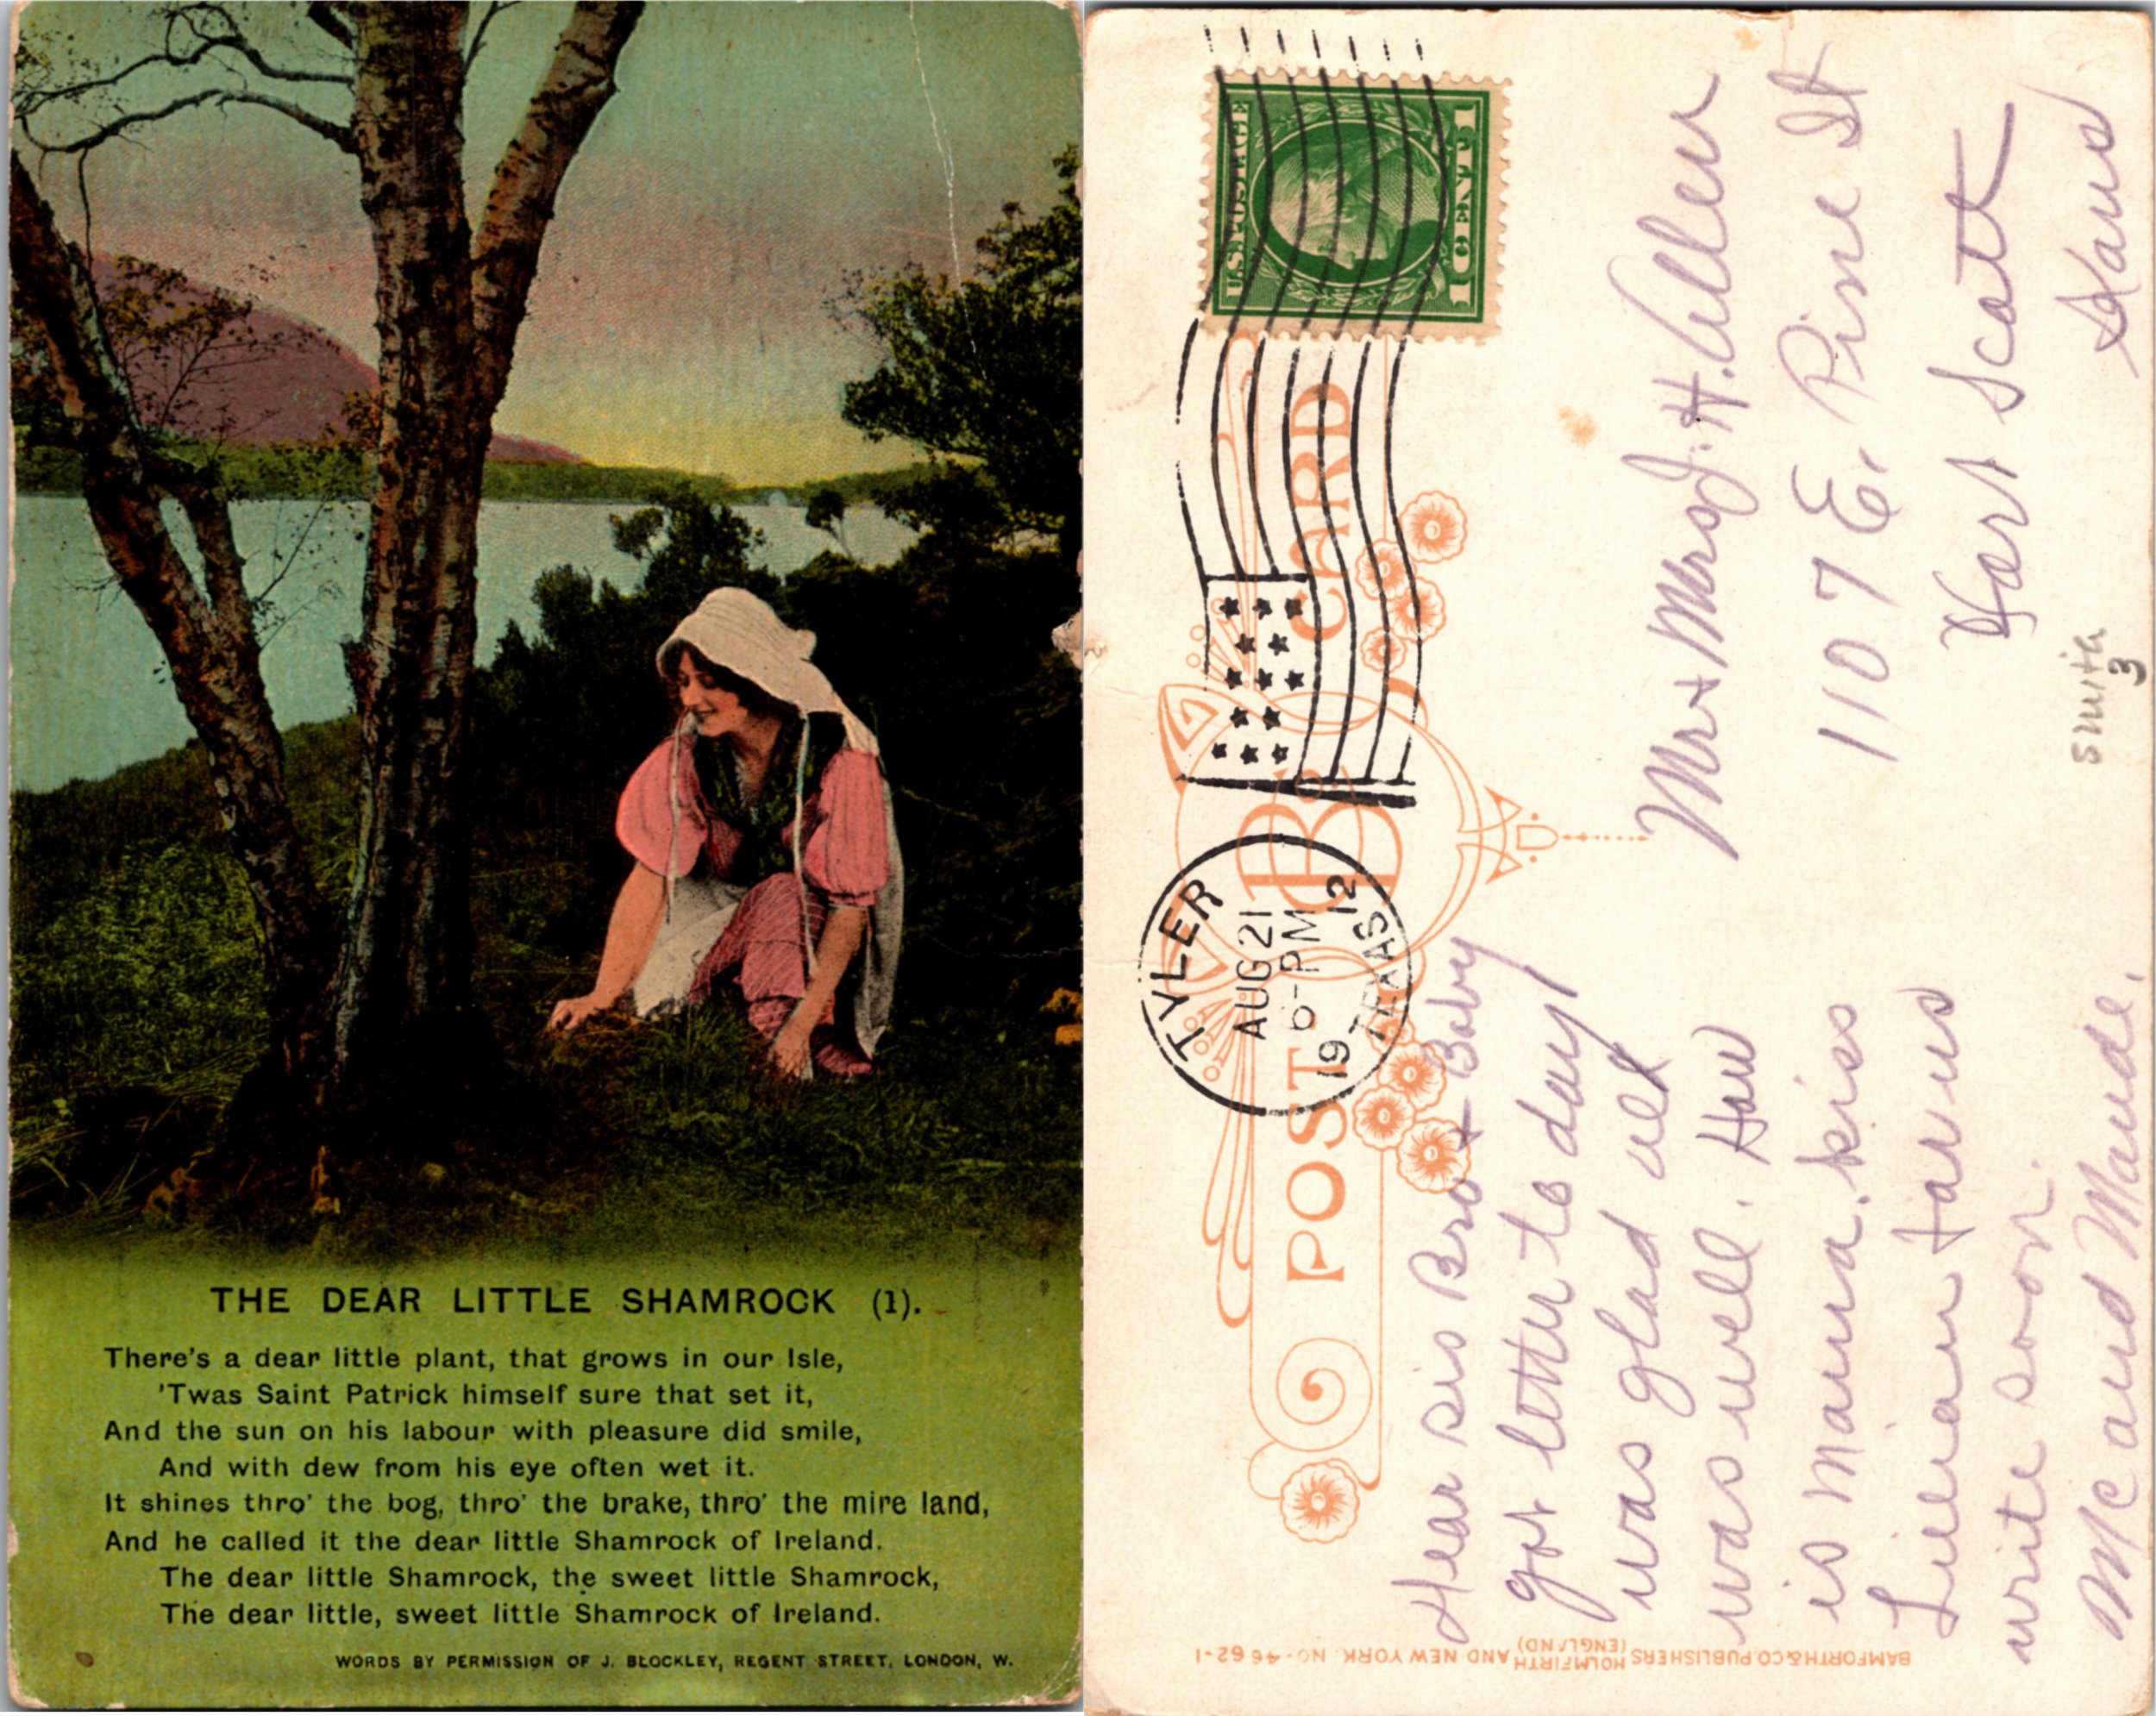 THE DEAR LITTLE SHAMROCK (1).
There's a dear little plant, that grows in our Isle,
'Twas Saint Patrick himself sure that set it,
And the sun on his labour with pleasure did smile,
And with dew from his eye often wet it.
It shines thro' the bog, thro' the brake, thro' the mire land,
And he called it the dear little Shamrock of Ireland.
The dear little Shamrock, the sweet little Shamrock,
The dear little, sweet little Shamrock of Ireland.
WORDS BY PERMISSION OF J. BLOCKLEY, REGENT STREET, LONDON, W.
U.S. POSTAGE
1 CENT 1
POST CARD
B
TYLER
AUG 21
6-PM
19 12
TEXAS
Mr + Mrs J. H. Allen
1107 E. Pine St
Fort Scott
Kans
Smith
3
Dear sis Bro + Baby
got letter to day
was glad all
was well. How
is mama. kiss
Lillian for us
write soon.
Mc and Maude.
BAMFORTH & CO. PUBLISHERS HOLMFIRTH (ENGLAND) AND NEW YORK. NO. 4662-1